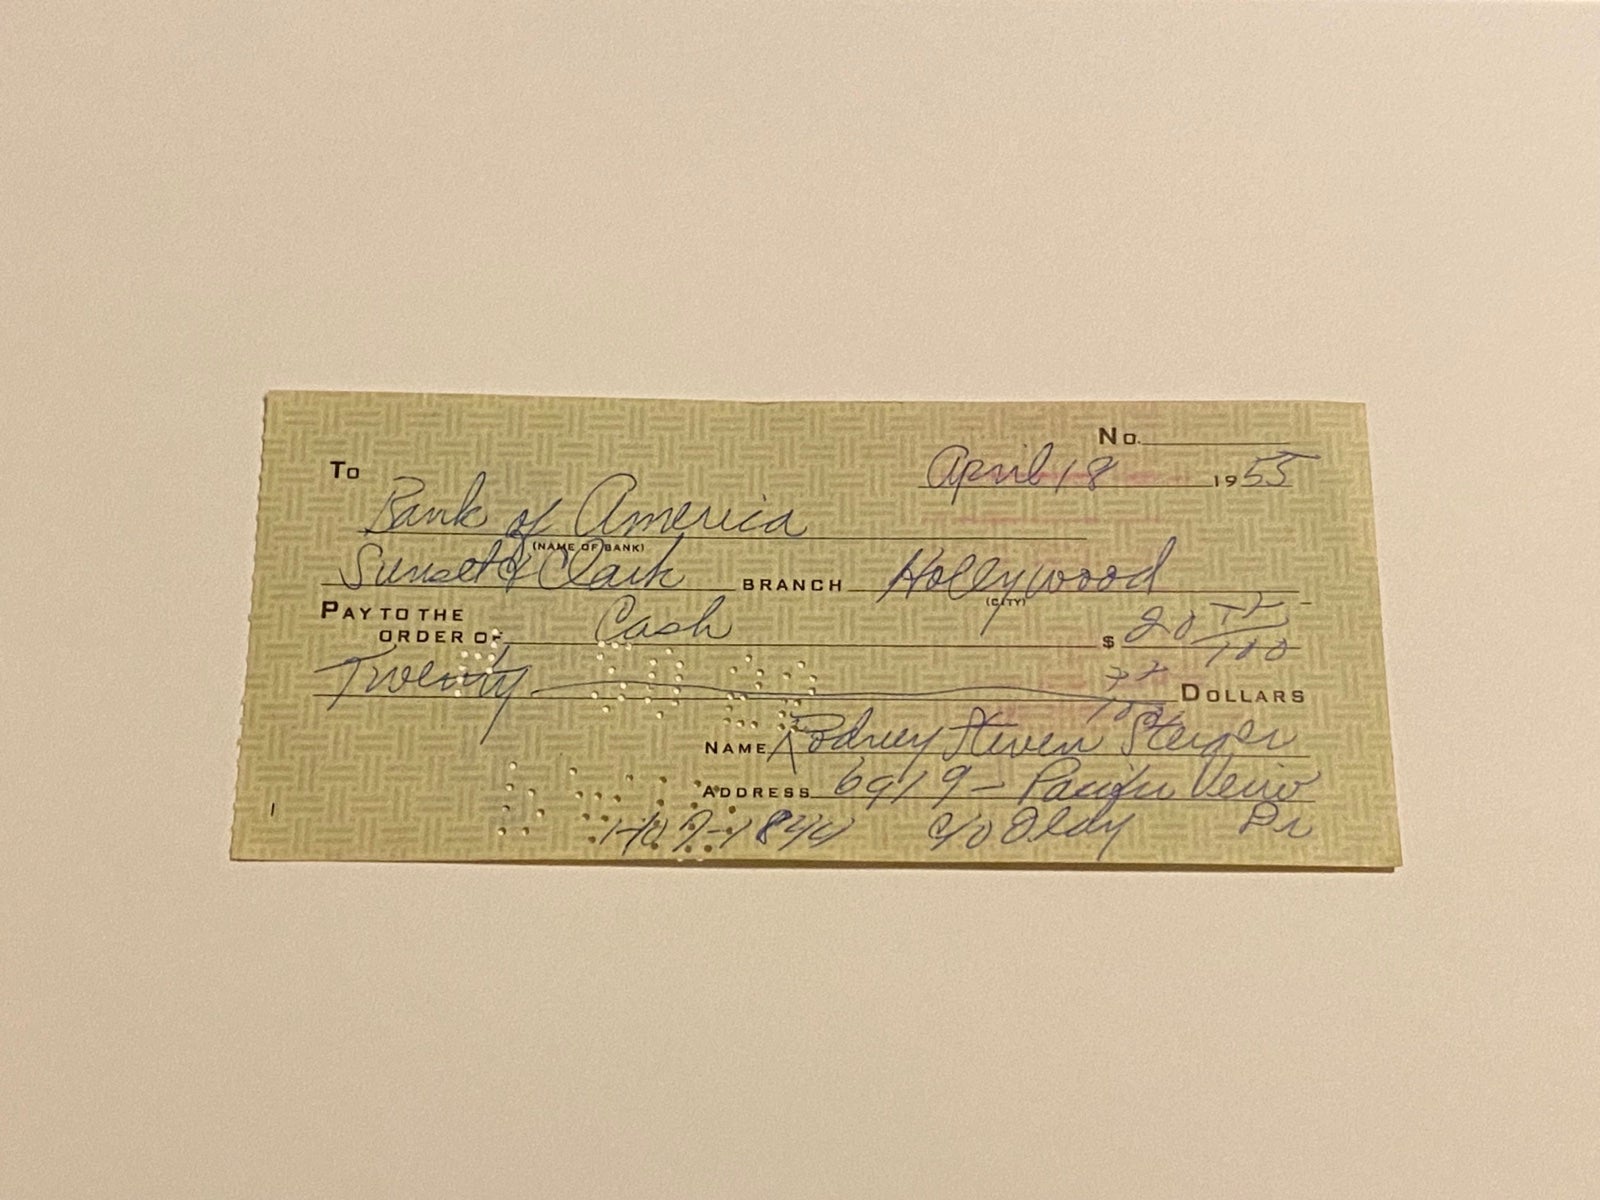 No.
April 18 1955
To
Bank of America
(NAME OF BANK)
Sunset & Clark BRANCH Hollywood
(CITY)
PAY TO THE
ORDER OF Cash $ 20 /100
Twenty /100 DOLLARS
NAME Rodney Steven Steiger
ADDRESS 6919 - Pacific View
c/o Dr
1